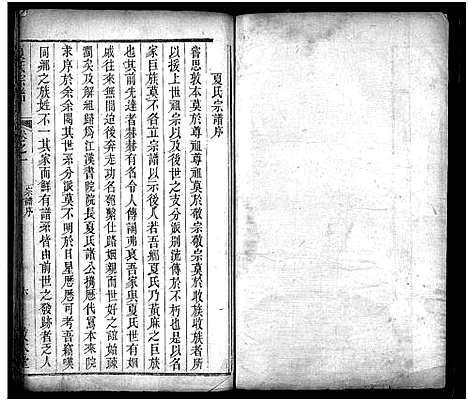 夏氏宗譜序
嘗思敦本莫於尊祖尊祖莫於敬宗敬宗莫於收族收族者所
以援上世祖宗之支分派别流傳於不朽也是以名
家巨族莫不各立宗譜以照來者吾鄉夏氏乃黃麻之巨族
也其前先達者彬彬有名令人傳誦弗衰吾家與夏氏世有
戚往來無間迨後奔走功名匏繫仕路姻親而世好之誼始疎
濶矣及解組歸爲江漢書院院長夏氏諸公携厯代寫本來院
求序於余余閱其世系分派莫不明於日星厯厯可考吾竊嘆
同鄉之族姓不一其家而鮮有譜系皆由前世之發跡者乏人
宗譜序